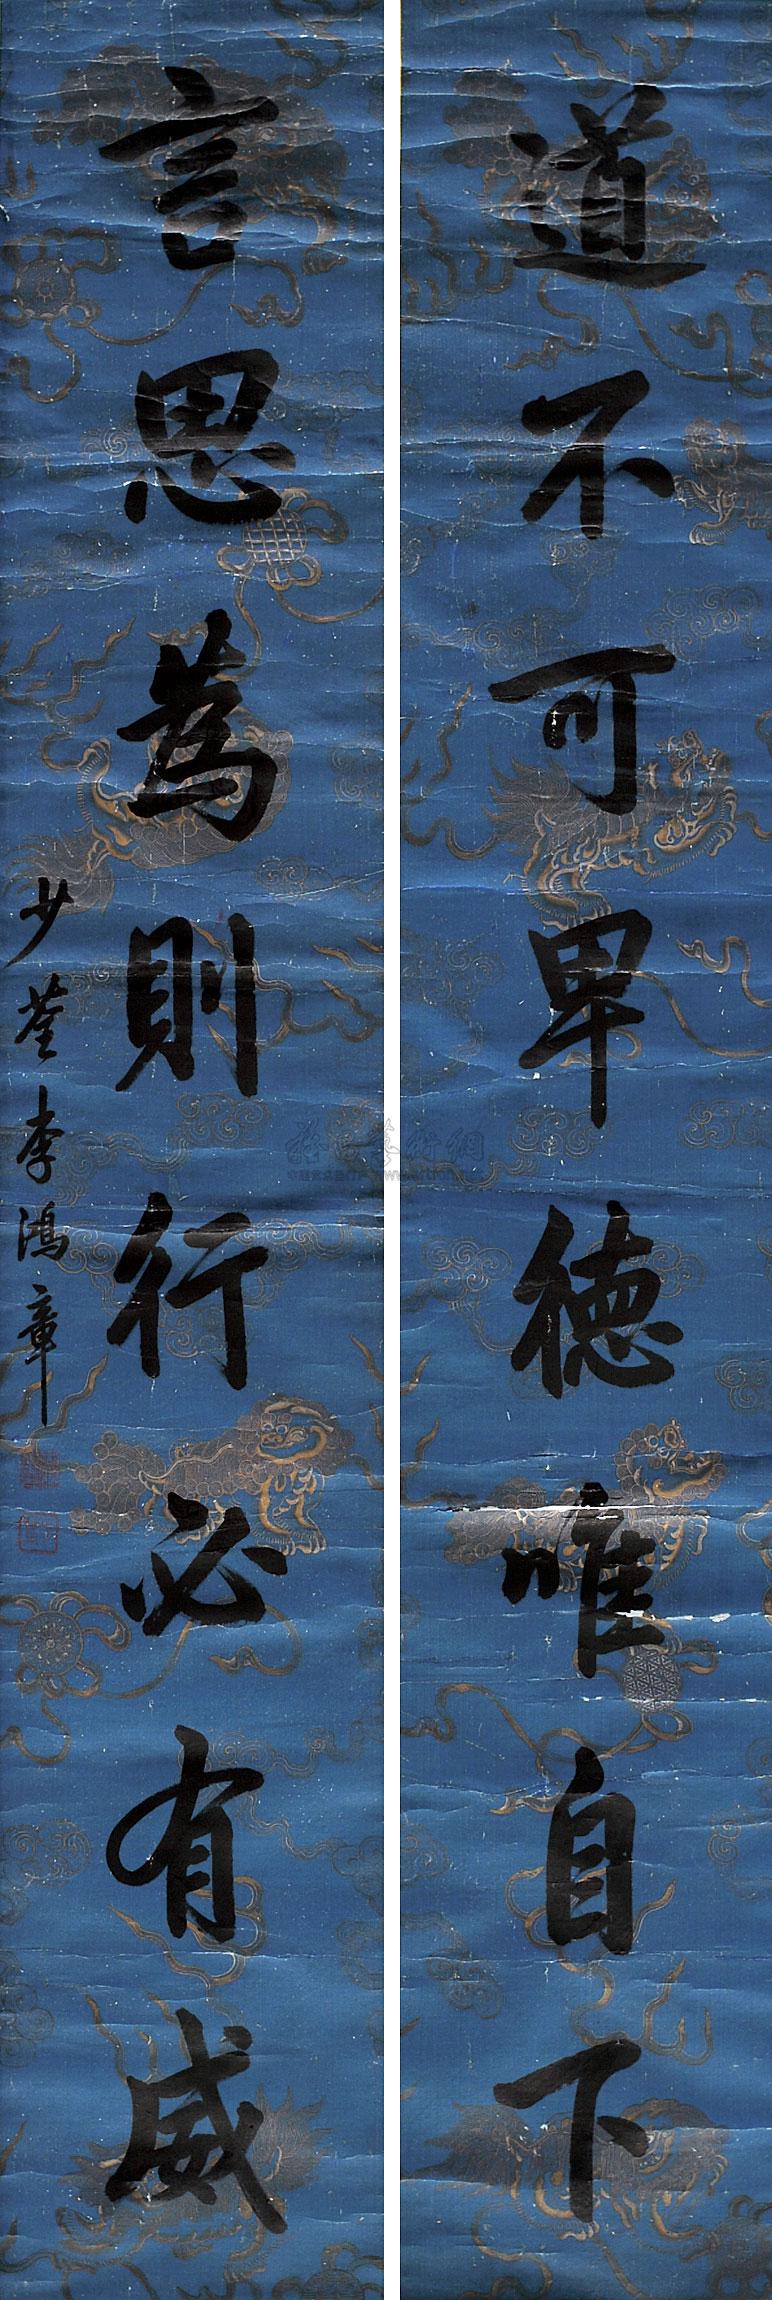 道不可卑德唯自下
言思為則行必有威
少荃李鴻章